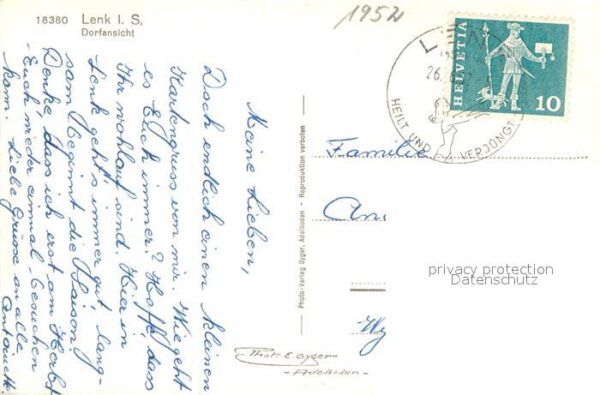 18380 Lenk i. S.
Dorfansicht
1952
Meine Lieben,
Doch endlich einen kleinen
Kartengruss von mir. Wie geht
es Euch immer? Hoff, dass
Ihr wohlauf sind. Hier in
Lenk geht's immer gut, lang-
sam beginnt die Saison.
Denke, dass ich erst am Herbst
Euch wieder einmal besuchen
komm. Liebe Grüsse an alle
Photo-Verlag Gyger, Adelboden - Reproduktion verboten
Phot. E. Gyger
- Adelboden -
HELVETIA
10
26.
HEILT UND VERJÜNGT
Familie
An
privacy protection
Datenschutz
Wy